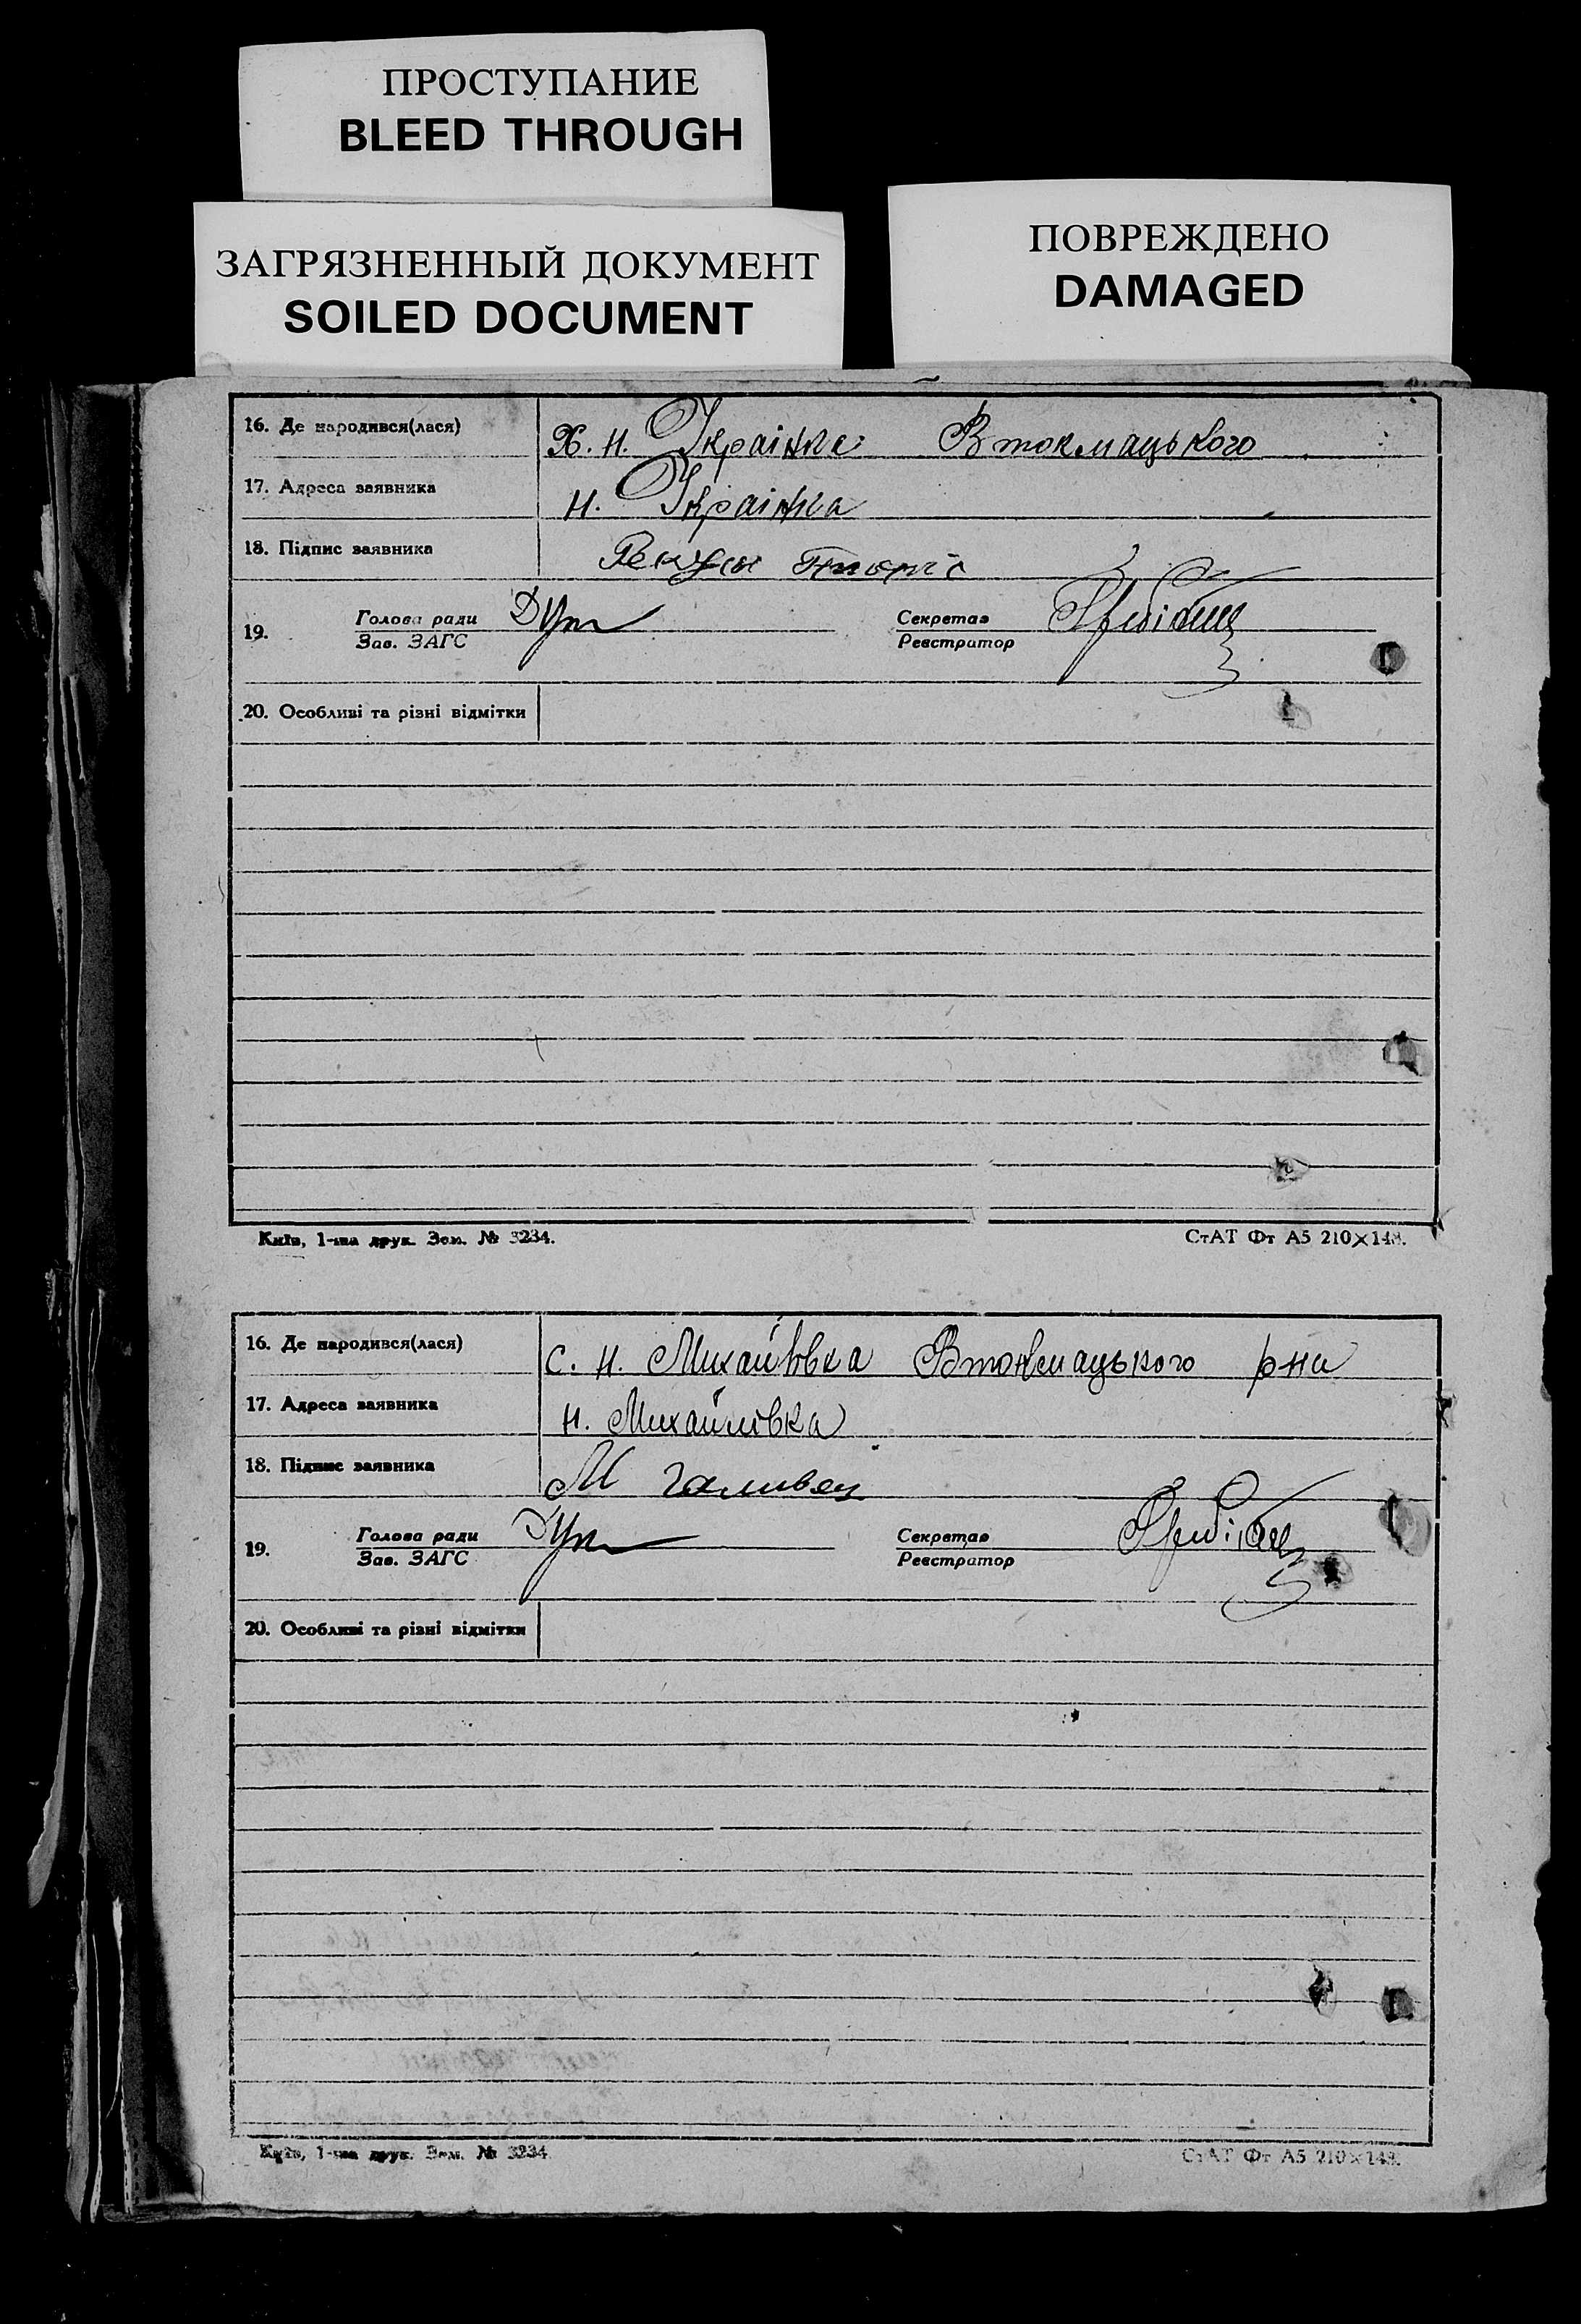 ПРОСТУПАНИЕ
BLEED THROUGH
ЗАГРЯЗНЕННЫЙ ДОКУМЕНТ
SOILED DOCUMENT
ПОВРЕЖДЕНО
DAMAGED
16. Де народився(лася) Х. Н. Українка Втокмацького
17. Адреса заявника Н. Українка
18. Підпис заявника
19. Голова ради Секретар
Зав. ЗАГС Реєстратор
20. Особливі та різні відмітки
Київ, 1-ша друк. Зам. № 3234. СтАТ Фт А5 210×148.
16. Де народився(лася) с. Н. Михайлівка Втокмацького рна
17. Адреса заявника Н. Михайлівка
18. Підпис заявника М
19. Голова ради Секретар
Зав. ЗАГС Реєстратор
20. Особливі та різні відмітки
Київ, 1-ша друк. Зам. № 3234 СтАТ Фт А5 210×148.